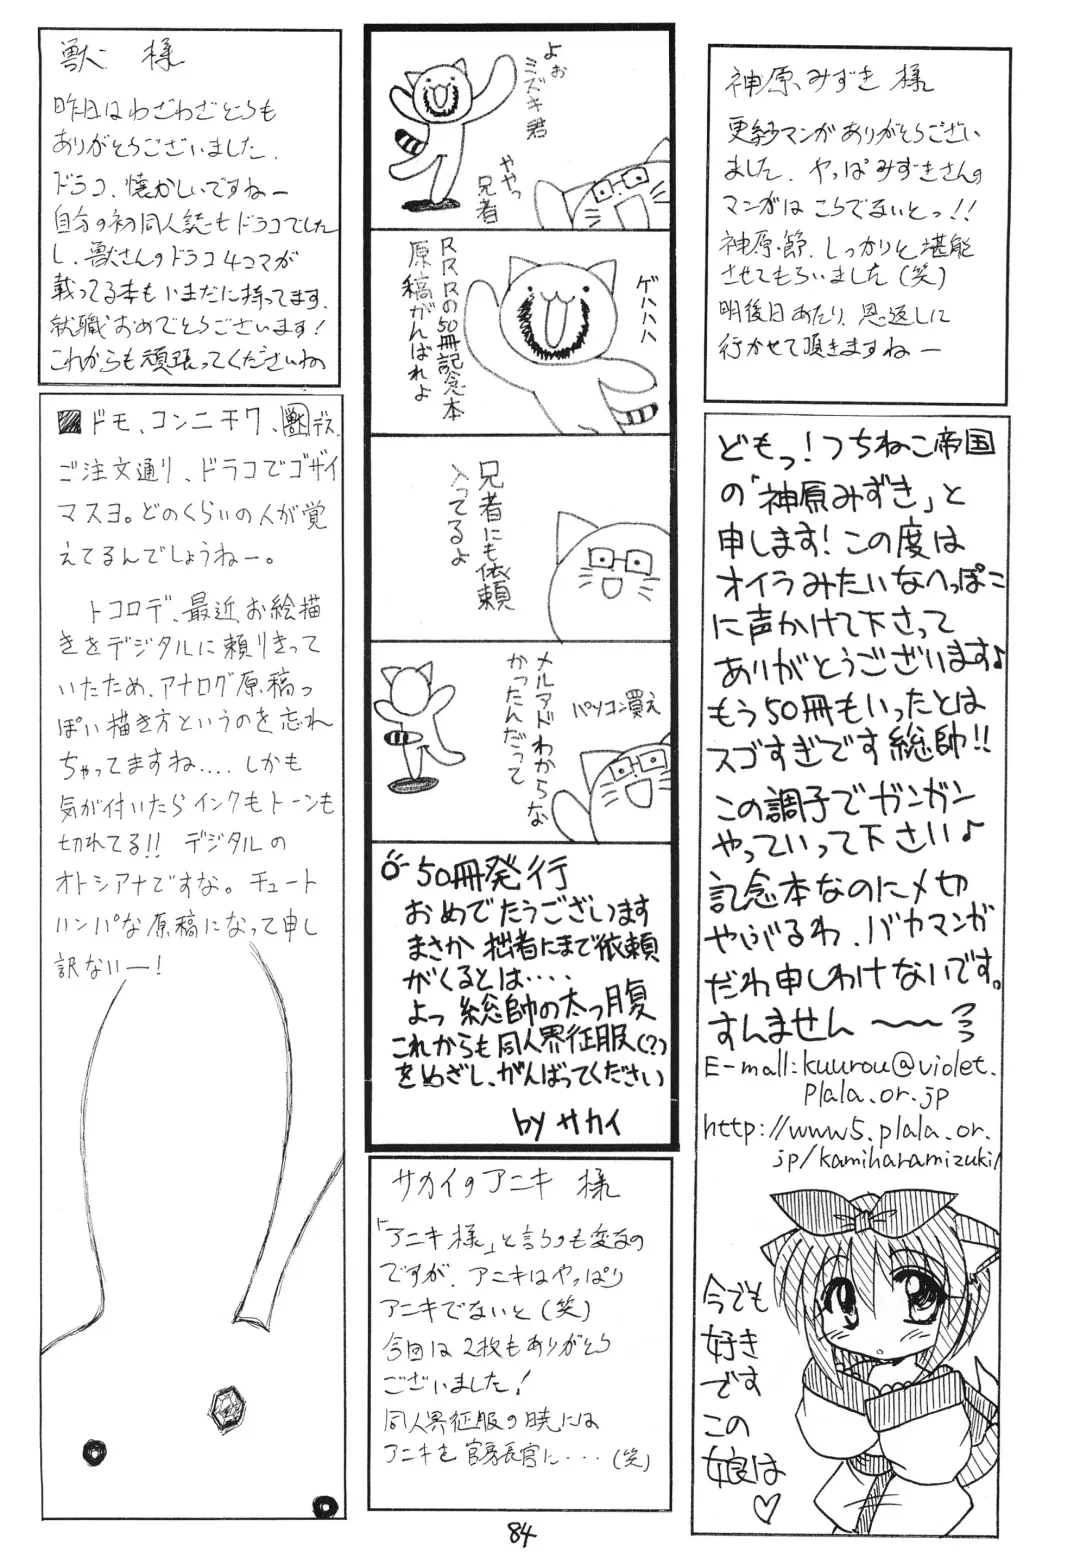 獣 様
昨日はわざわざどうも
ありがとうございました.
ドラコ、懐かしいですねー
自分の初同人誌もドラコでした
し、獣さんのドラコ4コマが
載ってる本もいまだに持ってます.
就職おめでとうございます!
これからも頑張ってくださいね
■ドモ、コンニチワ、獣デス.
ご注文通り、ドラコでゴザイ
マスヨ。どのくらいの人が覚
えてるんでしょうねー。
トコロデ、最近お絵描
きをデジタルに頼りきって
いたため、アナログ原稿っ
ぽい描き方というのを忘れ
ちゃってますね....しかも
気が付いたらインクもトーンも
切れてる!! デジタルの
オトシアナですな。チュート
ハンパな原稿になって申し
訳ないー!
よぉ
ミズキ君
ややっ
兄者
ゲハハハ
RRRの50冊記念本
原稿がんばれよ
兄者にも依頼
入ってるよ
メルアドわからな
かったんだって
パソコン買え
50冊発行
おめでたうございます
まさか拙者にまで依頼
がくるとは....
よっ 総帥の太っ腹
これからも同人界征服(?)
をめざし、がんばってください
by サカイ
サカイのアニキ 様
「アニキ様」と言うのも変なの
ですが、アニキはやっぱり
アニキでないと(笑)
今回は2枚もありがとう
ございました!
同人界征服の暁には
アニキを官房長官に...(笑)
神原みずき 様
更紗マンがありがとうござい
ました. やっぱみずきさんの
マンガはこうでないとっ!!
神原節、しっかりと堪能
させてもらいました(笑)
明後日あたり、恩返しに
行かせて頂きますねー
どもっ!つちねこ帝国
の「神原みずき」と
申します!この度は
オイラみたいなへっぽこ
に声かけて下さって
ありがとうございます♪
もう50冊もいったとは
スゴすぎです総帥!!
この調子でガンガン
やっていって下さい♪
記念本なのに〆切
やぶるわ、バカマンガ
だわ申しわけないです。
すんません〜〜
E-mall:kuurou@violet.
plala.or.jp
http://www5.plala.or.
jp/kamiharamizuki/
今でも
好き
です
この
娘は
♡
84